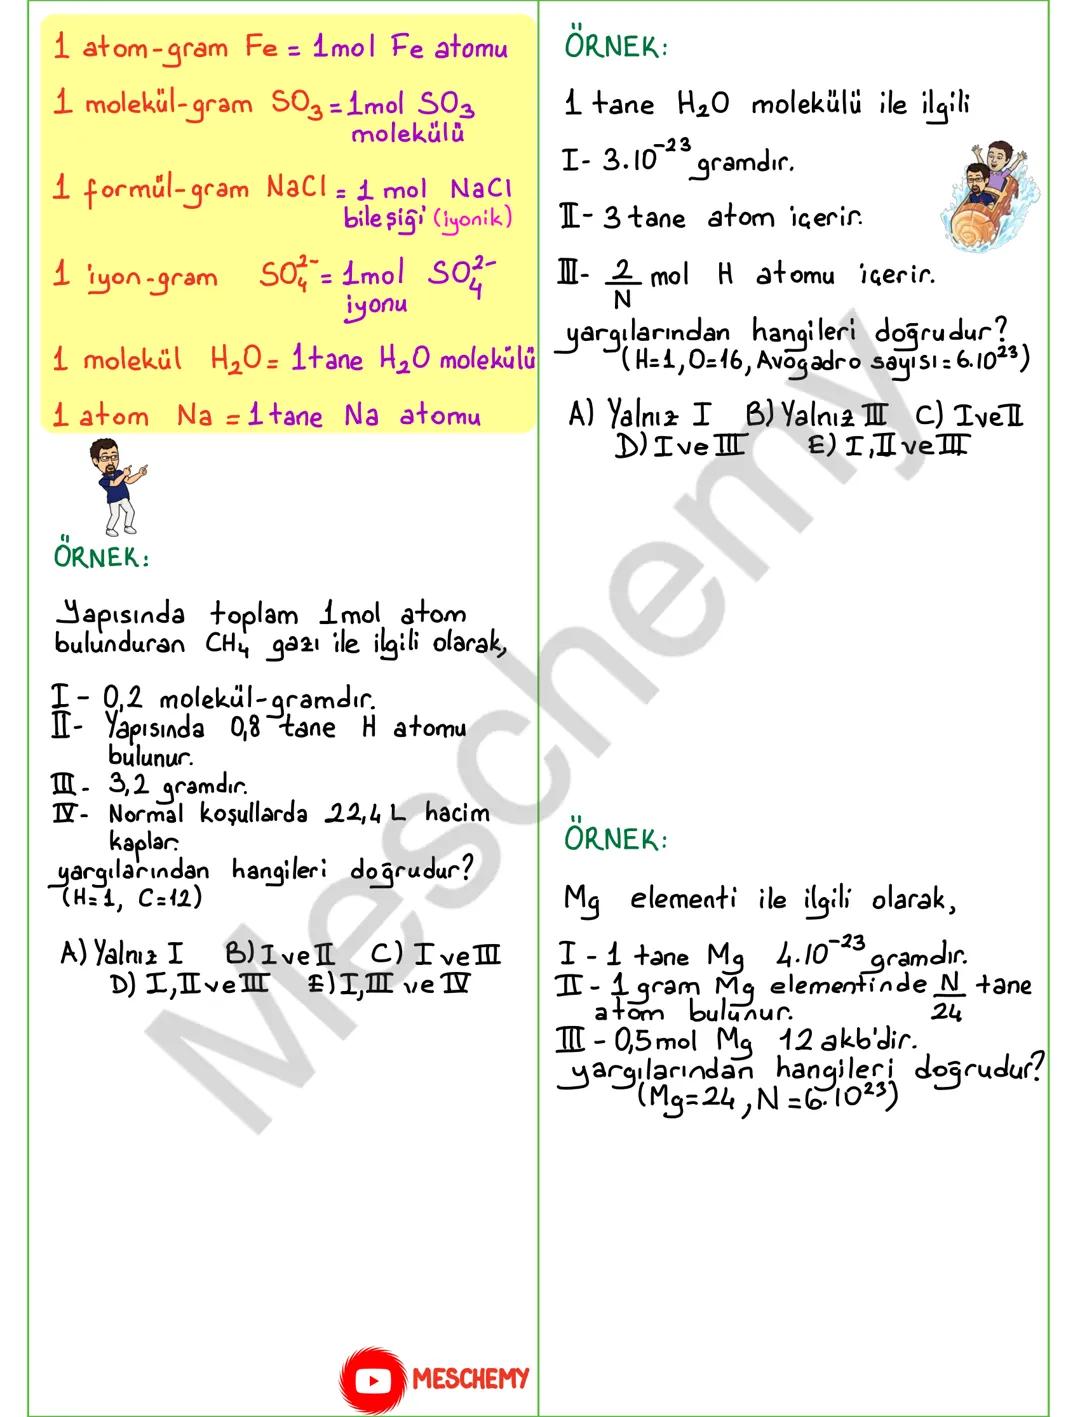 1 atom-gram Fe = 1mol Fe atomu
1 molekül-gram SO₃ = 1mol SO₃
molekülü
1 formül-gram NaCl = 1 mol NaCl
bileşiği (iyonik)
1 iyon-gram SO₄²⁻ = 1mol SO₄²⁻
iyonu
1 molekül H₂O = 1tane H₂O molekülü
1 atom Na = 1tane Na atomu
ÖRNEK:
Yapısında toplam 1mol atom
bulunduran CH₄ gazı ile ilgili olarak,
I - 0,2 molekül-gramdır.
II- Yapısında 0,8 tane H atomu
bulunur.
III- 3,2 gramdır.
IV- Normal koşullarda 22,4 L hacim
kaplar.
yargılarından hangileri doğrudur?
(H=1, C=12)
A) Yalnız I B) I ve II C) I ve III
D) I, II ve III E) I, III ve IV
MESCHEMY
ÖRNEK:
1 tane H₂O molekülü ile ilgili
I- 3.10⁻²³ gramdır.
II- 3 tane atom içerir.
III- 2/N mol H atomu içerir.
yargılarından hangileri doğrudur?
(H=1, O=16, Avogadro sayısı=6.10²³)
A) Yalnız I B) Yalnız III C) I ve II
D) I ve III E) I, II ve III
ÖRNEK:
Mg elementi ile ilgili olarak,
I - 1 tane Mg 4.10⁻²³ gramdır.
II - 1 gram Mg elementinde N/24 tane
atom bulunur.
III - 0,5mol Mg 12 akb'dir.
yargılarından hangileri doğrudur?
(Mg=24, N=6.10²³)
Meschemy